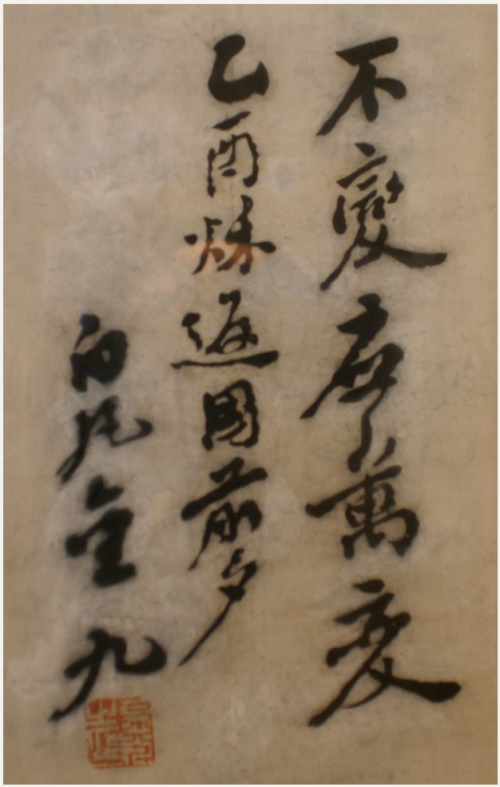 不變應萬变
乙酉秋返國前夕
白凡金九